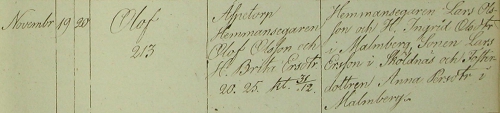 Novembr 19 20 Olof
213
Aspetorp
Hemmansegaren
Olof Olsson och
H. Brita Ersdtr
20. 25. kt. 31/12.
Hemmansegaren Lars Ols-
son och H. Ingrid Olsdtr
i Malmberg, Sonen Lars
Ersson i Skoldnäs och Foster-
dottren Anna Persdtr i
Malmberg.